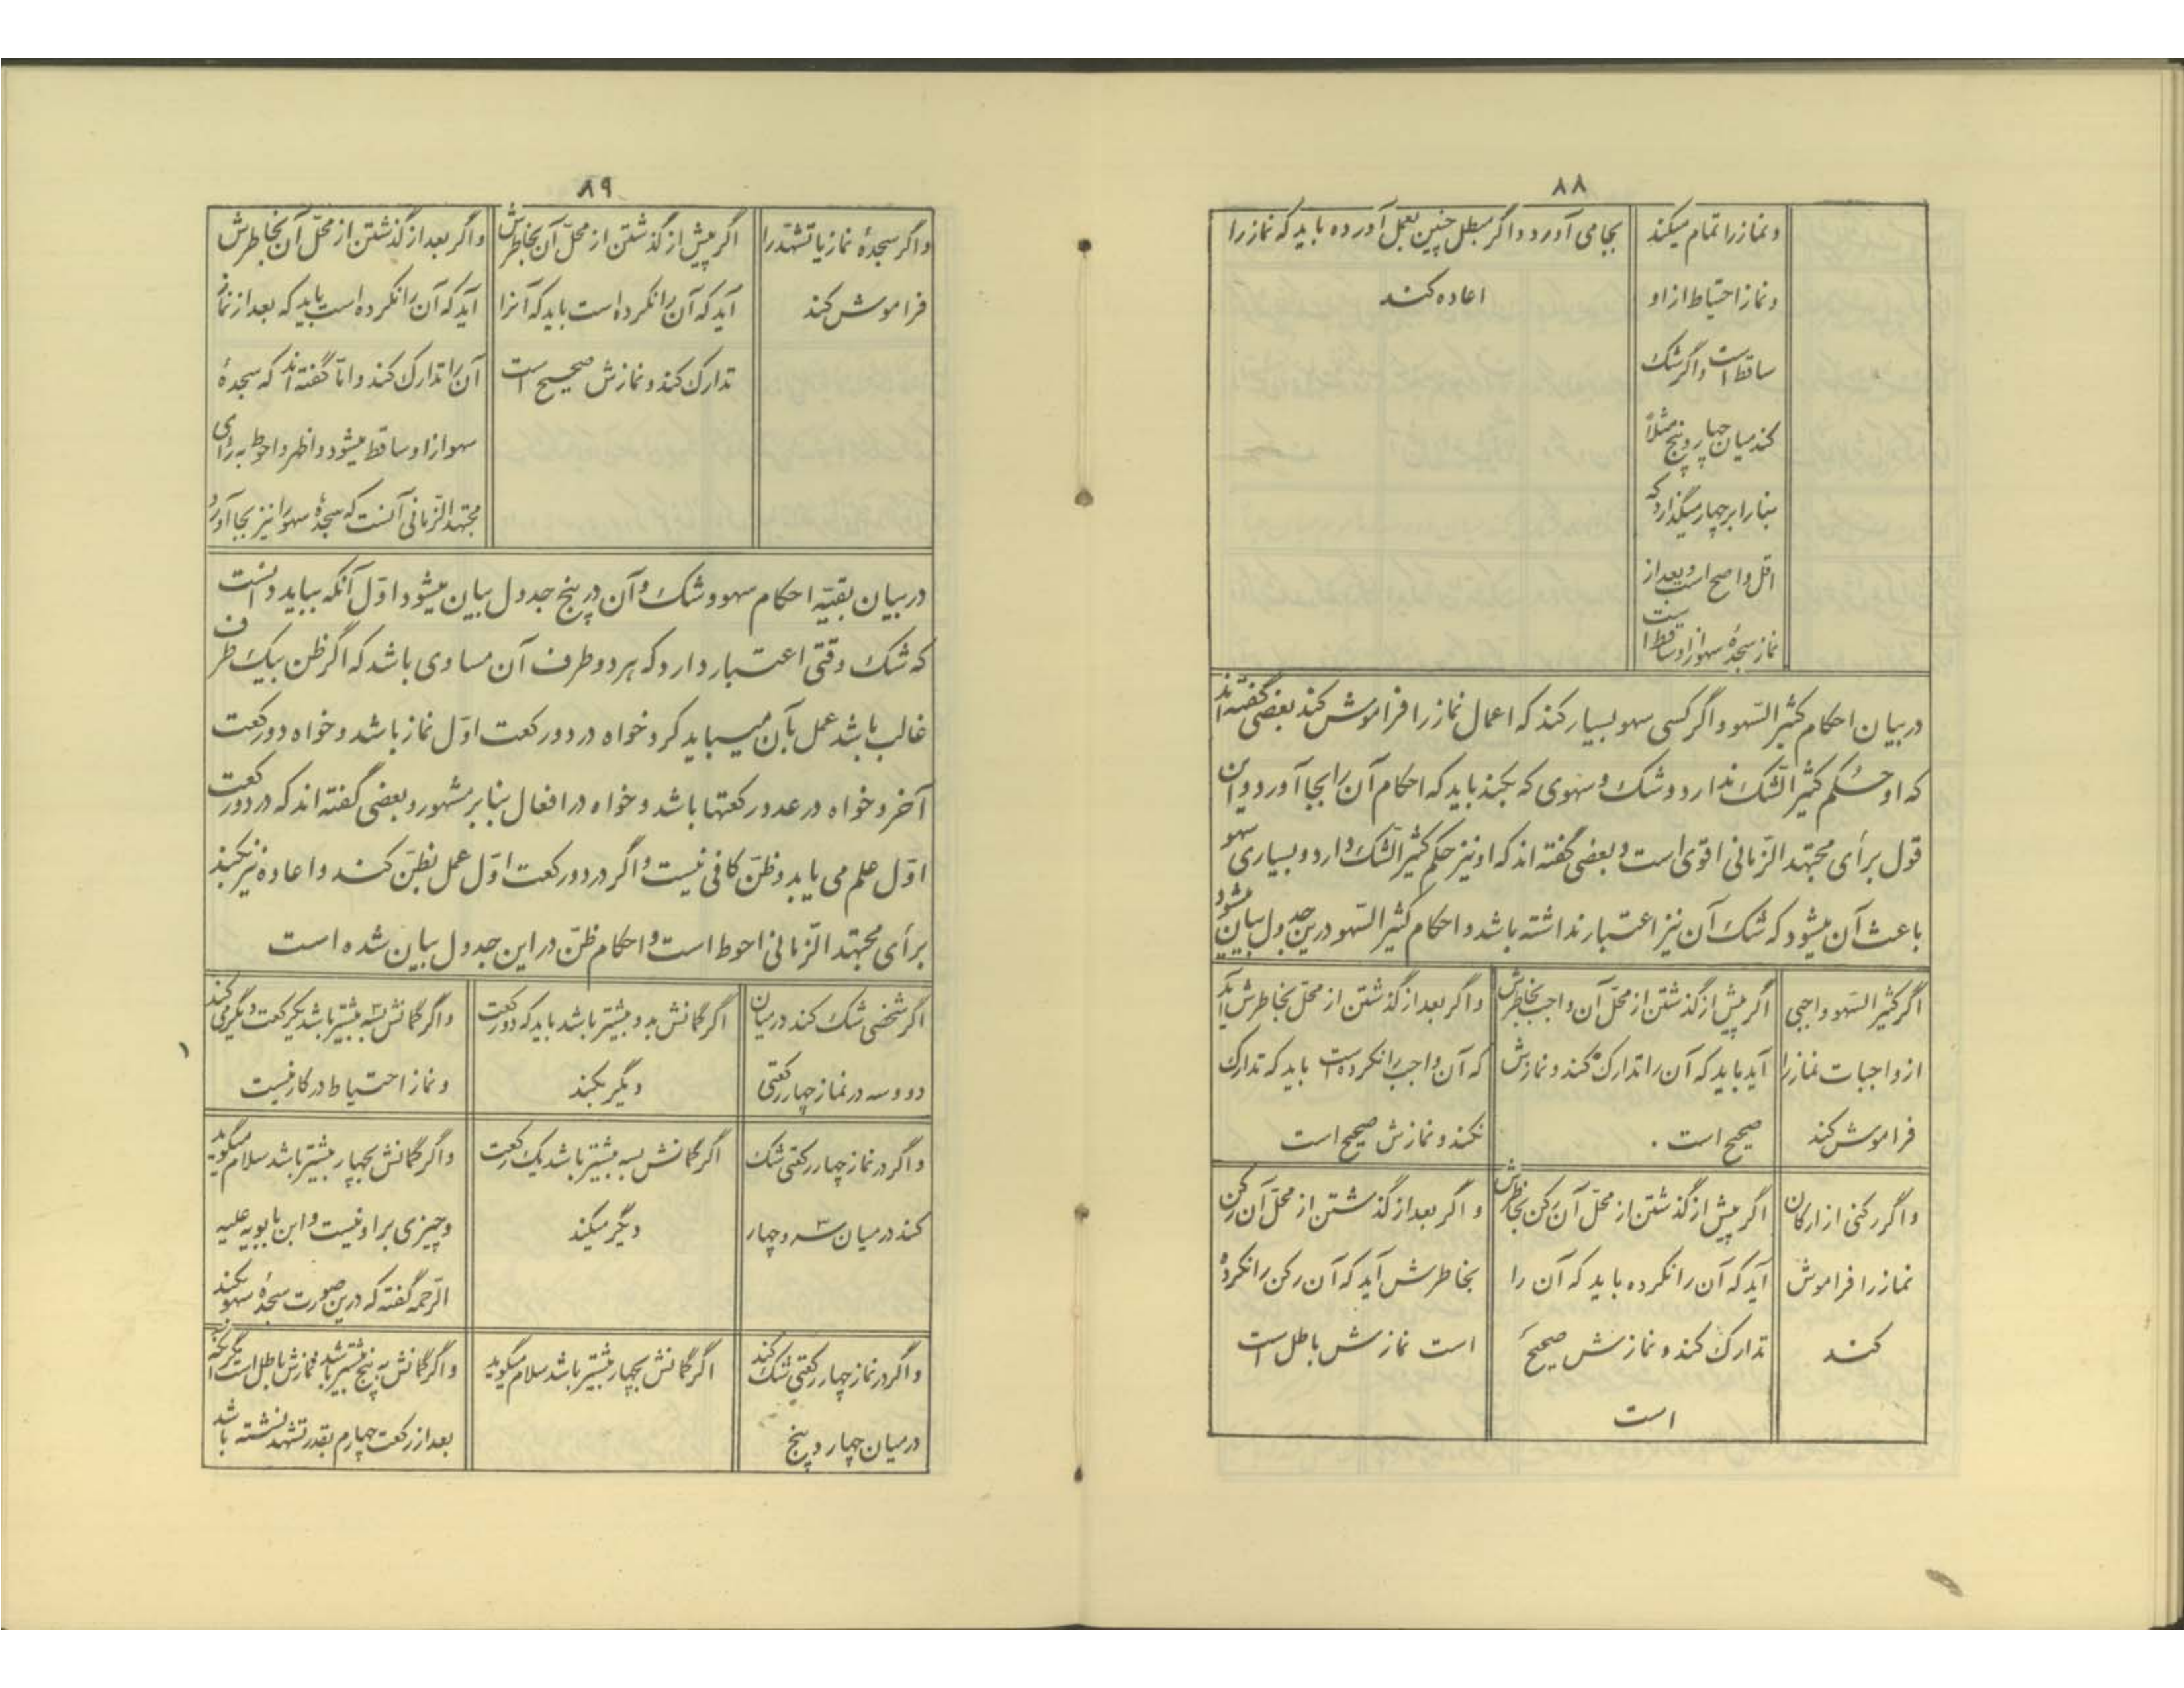 ۸۸
و نماز را تمام میکند
و نماز احتیاط از او
ساقط است و اگر شک
کند میان چهار و پنج مثلاً
بنا را بر چهار میگذارد که
اقل و اصح است و بعد از
نماز سجدهٔ سهو از او ساقط است
بجا می آورد و اگر مبطل چنین بعمل آورده باید که نماز را
اعاده کند
در بیان احکام کثیر السّهو و اگر کسی سهو بسیار کند که اعمال نماز را فراموش کند بعضی گفته اند
که او حکم کثیر الشّک ندارد و شک و سهوی که بکند باید که احکام آن را بجا آورد و این
قول برأی مجتهد الزّمانی اقوی است و بعضی گفته اند که او نیز حکم کثیر الشّک دارد و بسیاری سهو
باعث آن میشود که شک آن نیز اعتبار نداشته باشد و احکام کثیر السّهو درین جدول بیان میشود
اگر کثیر السّهو واجبی
از واجبات نماز را
فراموش کند
اگر پیش از گذشتن از محلّ آن واجب بخاطرش
آید باید که آن را تدارک کند و نمازش
صحیح است .
و اگر بعد از گذشتن از محلّ بخاطرش آید
که آن واجب را نکرده است باید که تدارک
نکند و نمازش صحیح است
و اگر رکنی از ارکان
نماز را فراموش
کند
اگر پیش از گذشتن از محلّ آن رکن بخاطرش
آید که آن را نکرده باید که آن را
تدارک کند و نمازش صحیح
است
و اگر بعد از گذشتن از محلّ آن رکن
بخاطرش آید که آن رکن را نکرده
است نمازش باطل است
۸۹
و اگر سجدهٔ نماز یا تشهّد را
فراموش کند
اگر پیش از گذشتن از محلّ آن بخاطرش
آید که آن را نکرده است باید که آنرا
تدارک کند و نمازش صحیح است
و اگر بعد از گذشتن از محلّ آن بخاطرش
آید که آن را نکرده است باید که بعد از نماز
آن را تدارک کند و امّا گفته اند که سجدهٔ
سهو از او ساقط میشود و اظهر و احوط به رأی
مجتهد الزّمانی آنست که سجدهٔ سهو را نیز بجا آورد
در بیان بقیّه احکام سهو و شک و آن در پنج جدول بیان میشود اوّل آنکه بباید دانست
که شک وقتی اعتبار دارد که هر دو طرف آن مساوی باشد که اگر ظن بیک طرف
غالب باشد عمل بآن میباید کرد خواه در دو رکعت اوّل نماز باشد و خواه دو رکعت
آخر و خواه در عدد رکعتها باشد و خواه در افعال بنا بر مشهور و بعضی گفته اند که در دو رکعت
اوّل علم می باید و ظنّ کافی نیست و اگر در دو رکعت اوّل عمل بظنّ کند و اعاده نیز بکند
برأی مجتهد الزّمانی احوط است و احکام ظنّ در این جدول بیان شده است
اگر شخصی شک کند در میان
دو و سه در نماز چهار رکعتی
اگر گمانش بدو بیشتر باشد باید که دو رکعت
دیگر بکند
و اگر گمانش بسه بیشتر باشد یک رکعت دیگر می کند
و نماز احتیاط در کار نیست
و اگر در نماز چهار رکعتی شک
کند در میان سه و چهار
اگر گمانش بسه بیشتر باشد یک رکعت
دیگر میکند
و اگر گمانش بچهار بیشتر باشد سلام میگوید
و چیزی بر او نیست و ابن بابویه علیه
الرّحمه گفته که درین صورت سجدهٔ سهو بکند
و اگر در نماز چهار رکعتی شک کند
در میان چهار و پنج
اگر گمانش بچهار بیشتر باشد سلام میگوید
و اگر گمانش به پنج بیشتر باشد نمازش باطل است
بعد از رکعت چهارم بقدر تشهد نشسته باشد